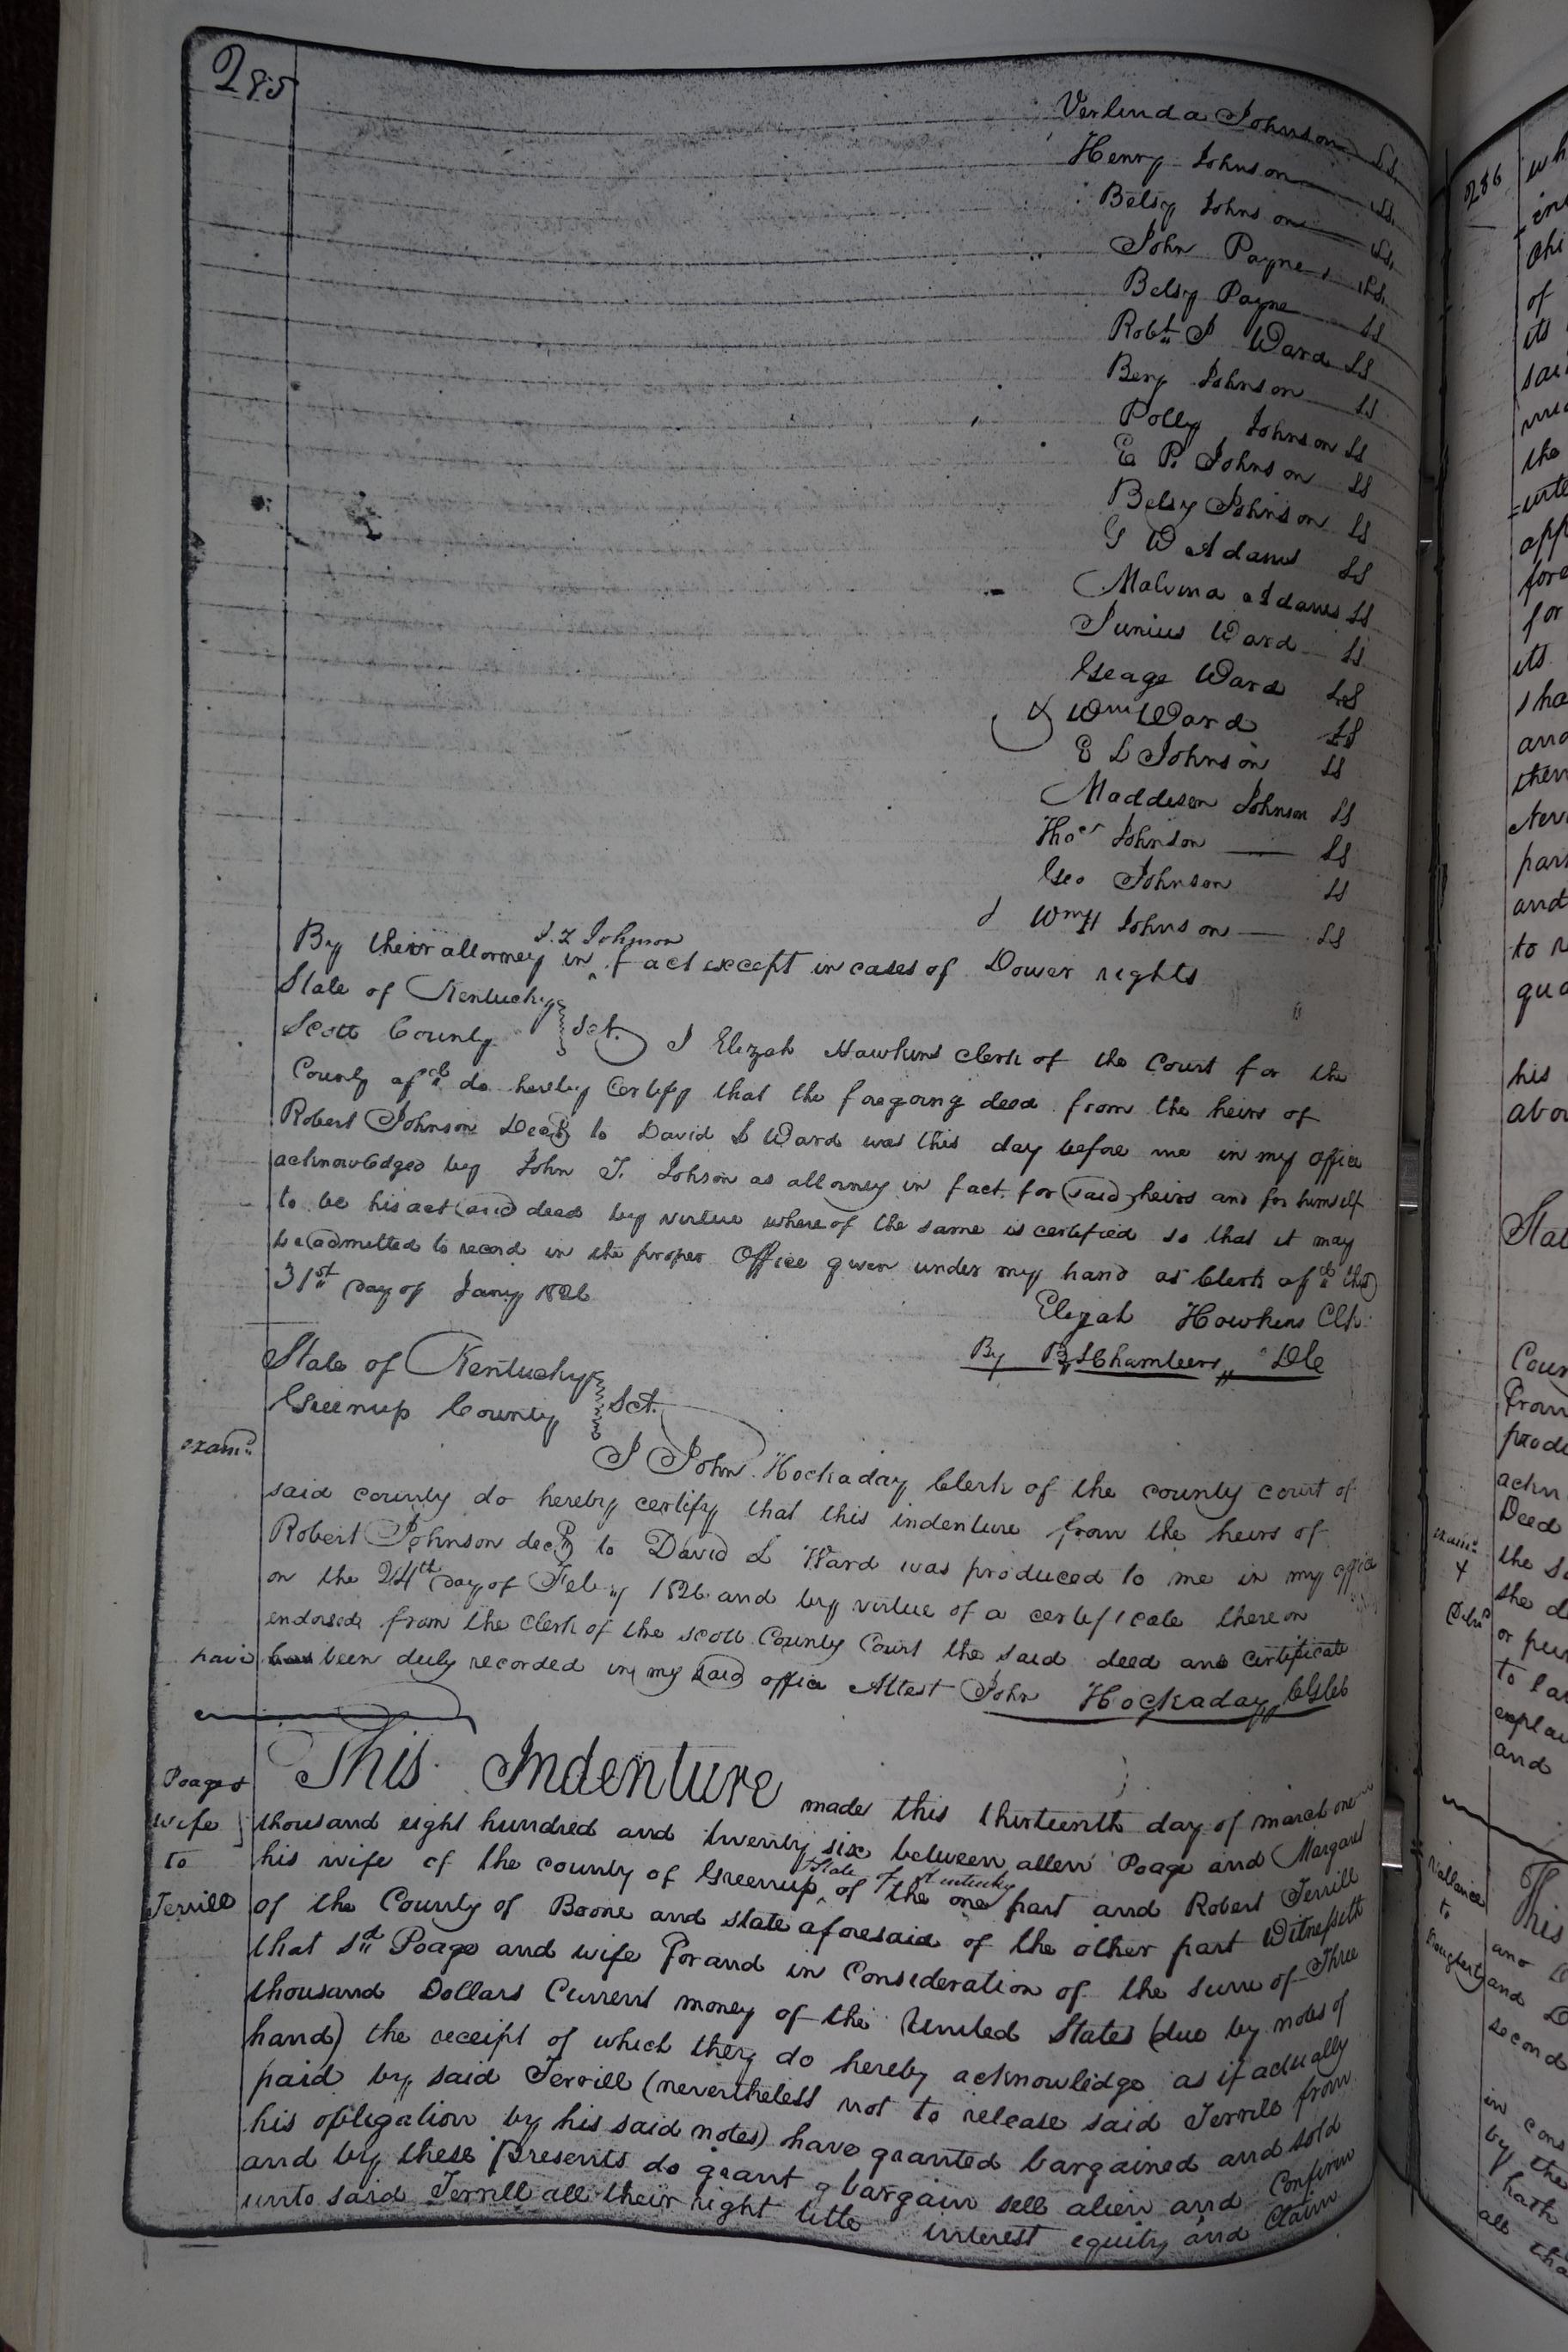 285
Verlinda Johnson LS
Henry Johnson LS
Betsy Johnson LS
John Payne LS
Betsy Payne LS
Robt J Ward LS
Benj Johnson LS
Polly Johnson LS
E P. Johnson LS
Betsy Johnson LS
G W Adams LS
Malvina Adams LS
Junius Ward LS
Geage Ward LS
& Wm Ward LS
E L Johnson LS
Maddison Johnson LS
Thos Johnson LS
Geo Johnson LS
& Wm H Johnson LS
J. T Johnson
By their attorney in ^ fact except in cases of Dower rights
State of Kentucky
Scott County } Sct. I Elizah Hawkins clerk of the Court for the
County afsd do hereby Certify that the foregoing deed from the heirs of
Robert Johnson Decd to David L Ward was this day before me in my office
acknowledged by John T. Johson as attorney in fact for said heirs and for himself
to be his act and deed by virtue where of the same is certified so that it may
be admitted to record in the proper Office given under my hand as Clerk afsd this
31st day of Jany 1826
Elizah Howkins Clk
By B. S. Chambers DC
State of Kentucky
Greenup County } Sct.
exam.d
I John Hockaday Clerk of the county court of
said county do hereby certify that this indenture from the heirs of
Robert Johnson decd to David L Ward was produced to me in my office
on the 24th day of Feby 1826 and by virtue of a certificate thereon
endorsed from the Clerk of the Scott County Court the said deed and certificate
have been duly recorded in my said office Attest John Hockaday CGCC
Poage &
wife
to
Terrill
This Indenture made this thirteenth day of march one
thousand eight hundred and twenty six between allen Poage and Margaret
his wife of the county of Greenup ^ State of Kentucky of the one part and Robert Terrill
of the County of Boone and state aforesaid of the other part Witnesseth
that sd Poage and wife for and in Consideration of the sum of Three
thousand Dollars Current money of the United States (due by notes of
hand) the receipt of which they do hereby acknowledge as if actually
paid by said Terrill (nevertheless not to release said Terrill from
his obligation by his said notes) have granted bargained and sold
and by these presents do grant bargain sell alien and Confirm
unto said Terrill all their right title interest equity and Claim
286
wh
of
its
the
app
fore
for
its
sha
and
them
part
and
to
his
abov
Stat
Coun
From
produ
ackn
Deed
the s
she d
or
to
and
exam.d
&
to
This
and
and D
second
in cons
by the
hath
all tha